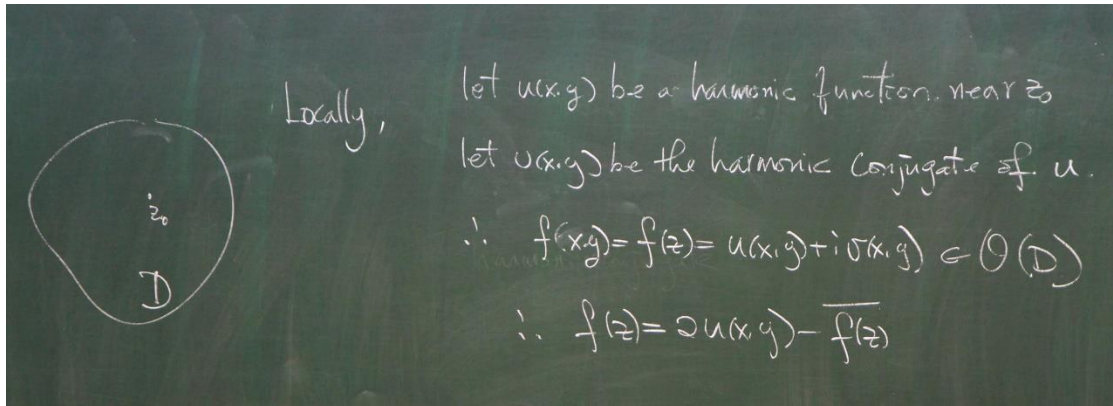 Locally,
let u(x.y) be a harmonic function. near z₀
let v(x.y) be the harmonic conjugate of u.
∴ f(x.y) = f(z) = u(x,y) + i v(x,y) ∈ O(D)
∴ f(z) = 2u(x,y) - \overline{f(z)}
z₀
D